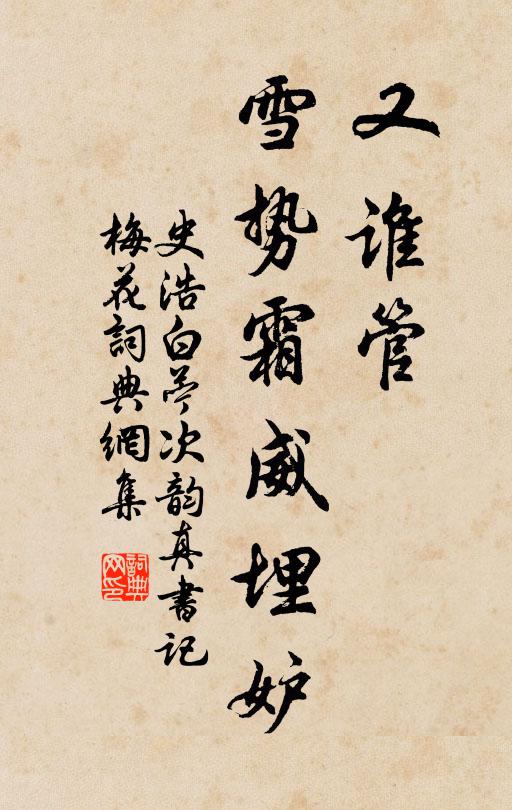 又谁管
雪势霜威埋妒
史浩白苎次韵真书记
梅花詞典網集
詞典
网印